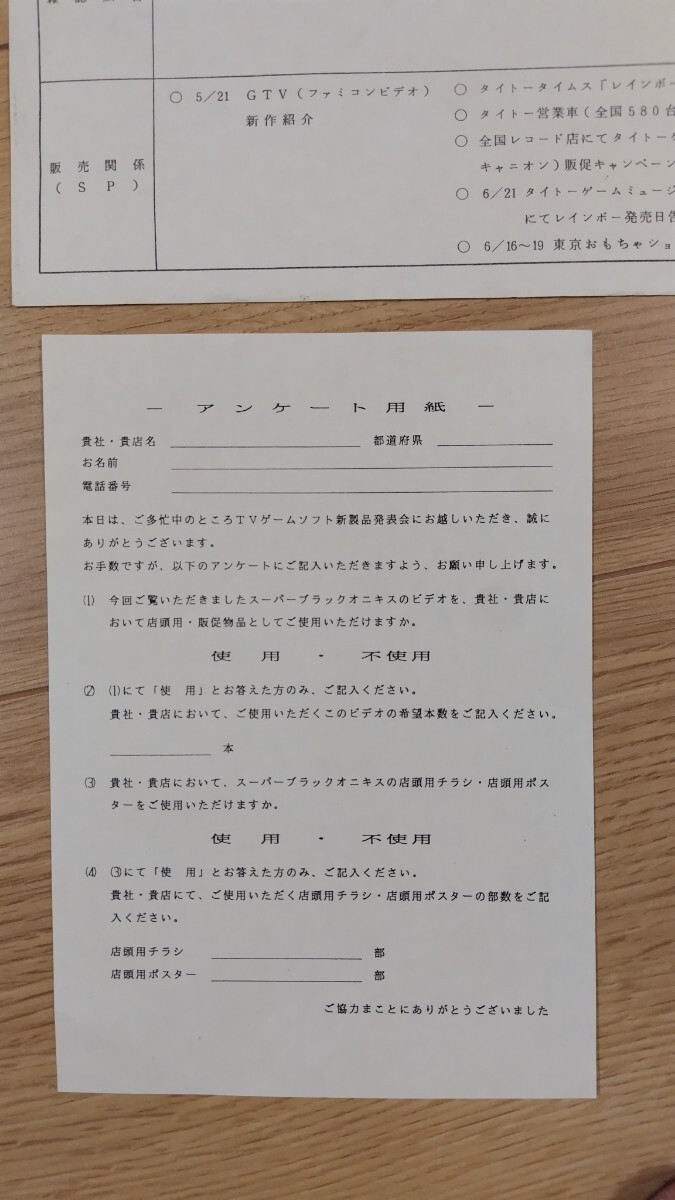 ○ 5／21 GTV（ファミコンビデオ）
新作紹介
販売関係
（ＳＰ）
○ タイトータイムス「レインボー
○ タイトー営業車（全国580台
○ 全国レコード店にてタイトー
キャニオン）販促キャンペーン
○ 6／21 タイトーゲームミュージ
にてレインボー発売日告
○ 6／16〜19 東京おもちゃショ
－ アンケート用紙 －
貴社・貴店名 都道府県
お名前
電話番号
本日は、ご多忙中のところTVゲームソフト新製品発表会にお越しいただき、誠に
ありがとうございます。
お手数ですが、以下のアンケートにご記入いただきますよう、お願い申し上げます。
⑴ 今回ご覧いただきましたスーパーブラックオニキスのビデオを、貴社・貴店に
おいて店頭用・販促物品としてご使用いただけますか。
使 用 ・ 不使用
⑵ ⑴にて「使 用」とお答えた方のみ、ご記入ください。
貴社・貴店において、ご使用いただくこのビデオの希望本数をご記入ください。
本
⑶ 貴社・貴店において、スーパーブラックオニキスの店頭用チラシ・店頭用ポス
ターをご使用いただけますか。
使 用 ・ 不使用
⑷ ⑶にて「使 用」とお答えた方のみ、ご記入ください。
貴社・貴店にて、ご使用いただく店頭用チラシ・店頭用ポスターの部数をご記
入ください。
店頭用チラシ 部
店頭用ポスター 部
ご協力まことにありがとうございました